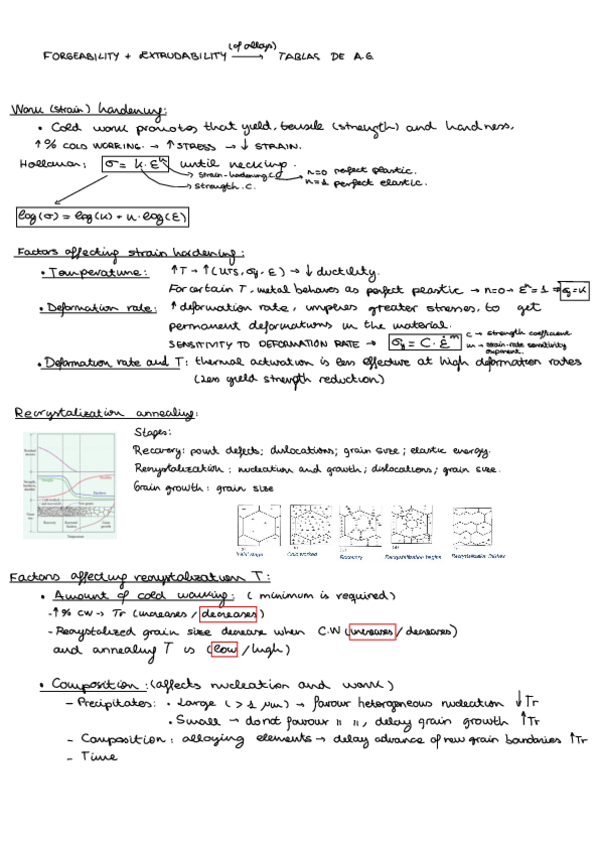 (of alloys)
FORGEABILITY + EXTRUDABILITY → TABLAS DE A.G.
Work (strain) hardening:
• Cold work promotes that yield, tensile (strength) and hardness,
↑ % COLD WORKING. → ↑ STRESS → ↓ STRAIN.
Holloman: σ = k · εⁿ until necking.
strain-hardening C. n=0 perfect plastic.
n=1 perfect elastic.
strength. C.
log(σ) = log(k) + n · log(ε)
Factors affecting strain hardening:
• Temperature: ↑T → ↑(UTS, σy, E) → ↓ ductility.
For certain T, metal behaves as perfect plastic → n=0 → εⁿ=1 ⇒ σy=k
• Deformation rate: ↑ deformation rate, implies greater stresses, to get
permanent deformations in the material.
SENSITIVITY TO DEFORMATION RATE → σy = C · ε̇ᵐ
C → strength coefficient
m → strain-rate sensitivity
exponent.
• Deformation rate and T: thermal activation is less effective at high deformation rates
(less yield strength reduction)
Recrystalization annealing:
Stages:
Recovery: point defects; dislocations; grain size; elastic energy.
Recrystalization: nucleation and growth; dislocations; grain size.
Grain growth: grain size
Temperature
Initial stage
Cold worked
Recovery
Recrystallization begins
Factors affecting recrystalization T:
• Amount of cold working: (minimum is required)
- ↑% CW → Tr (increases / decreases)
- Recrystalized grain size decrease when C.W (increases / decreases)
and annealing T is (low / high)
• Composition: (affects nucleation and work)
- Precipitates: • Large (> 1 μm) → favour heterogeneous nucleation ↓Tr
• Small → do not favour " ", delay grain growth ↑Tr
- Composition: alloying elements → delay advance of new grain boundaries ↑Tr
- Time